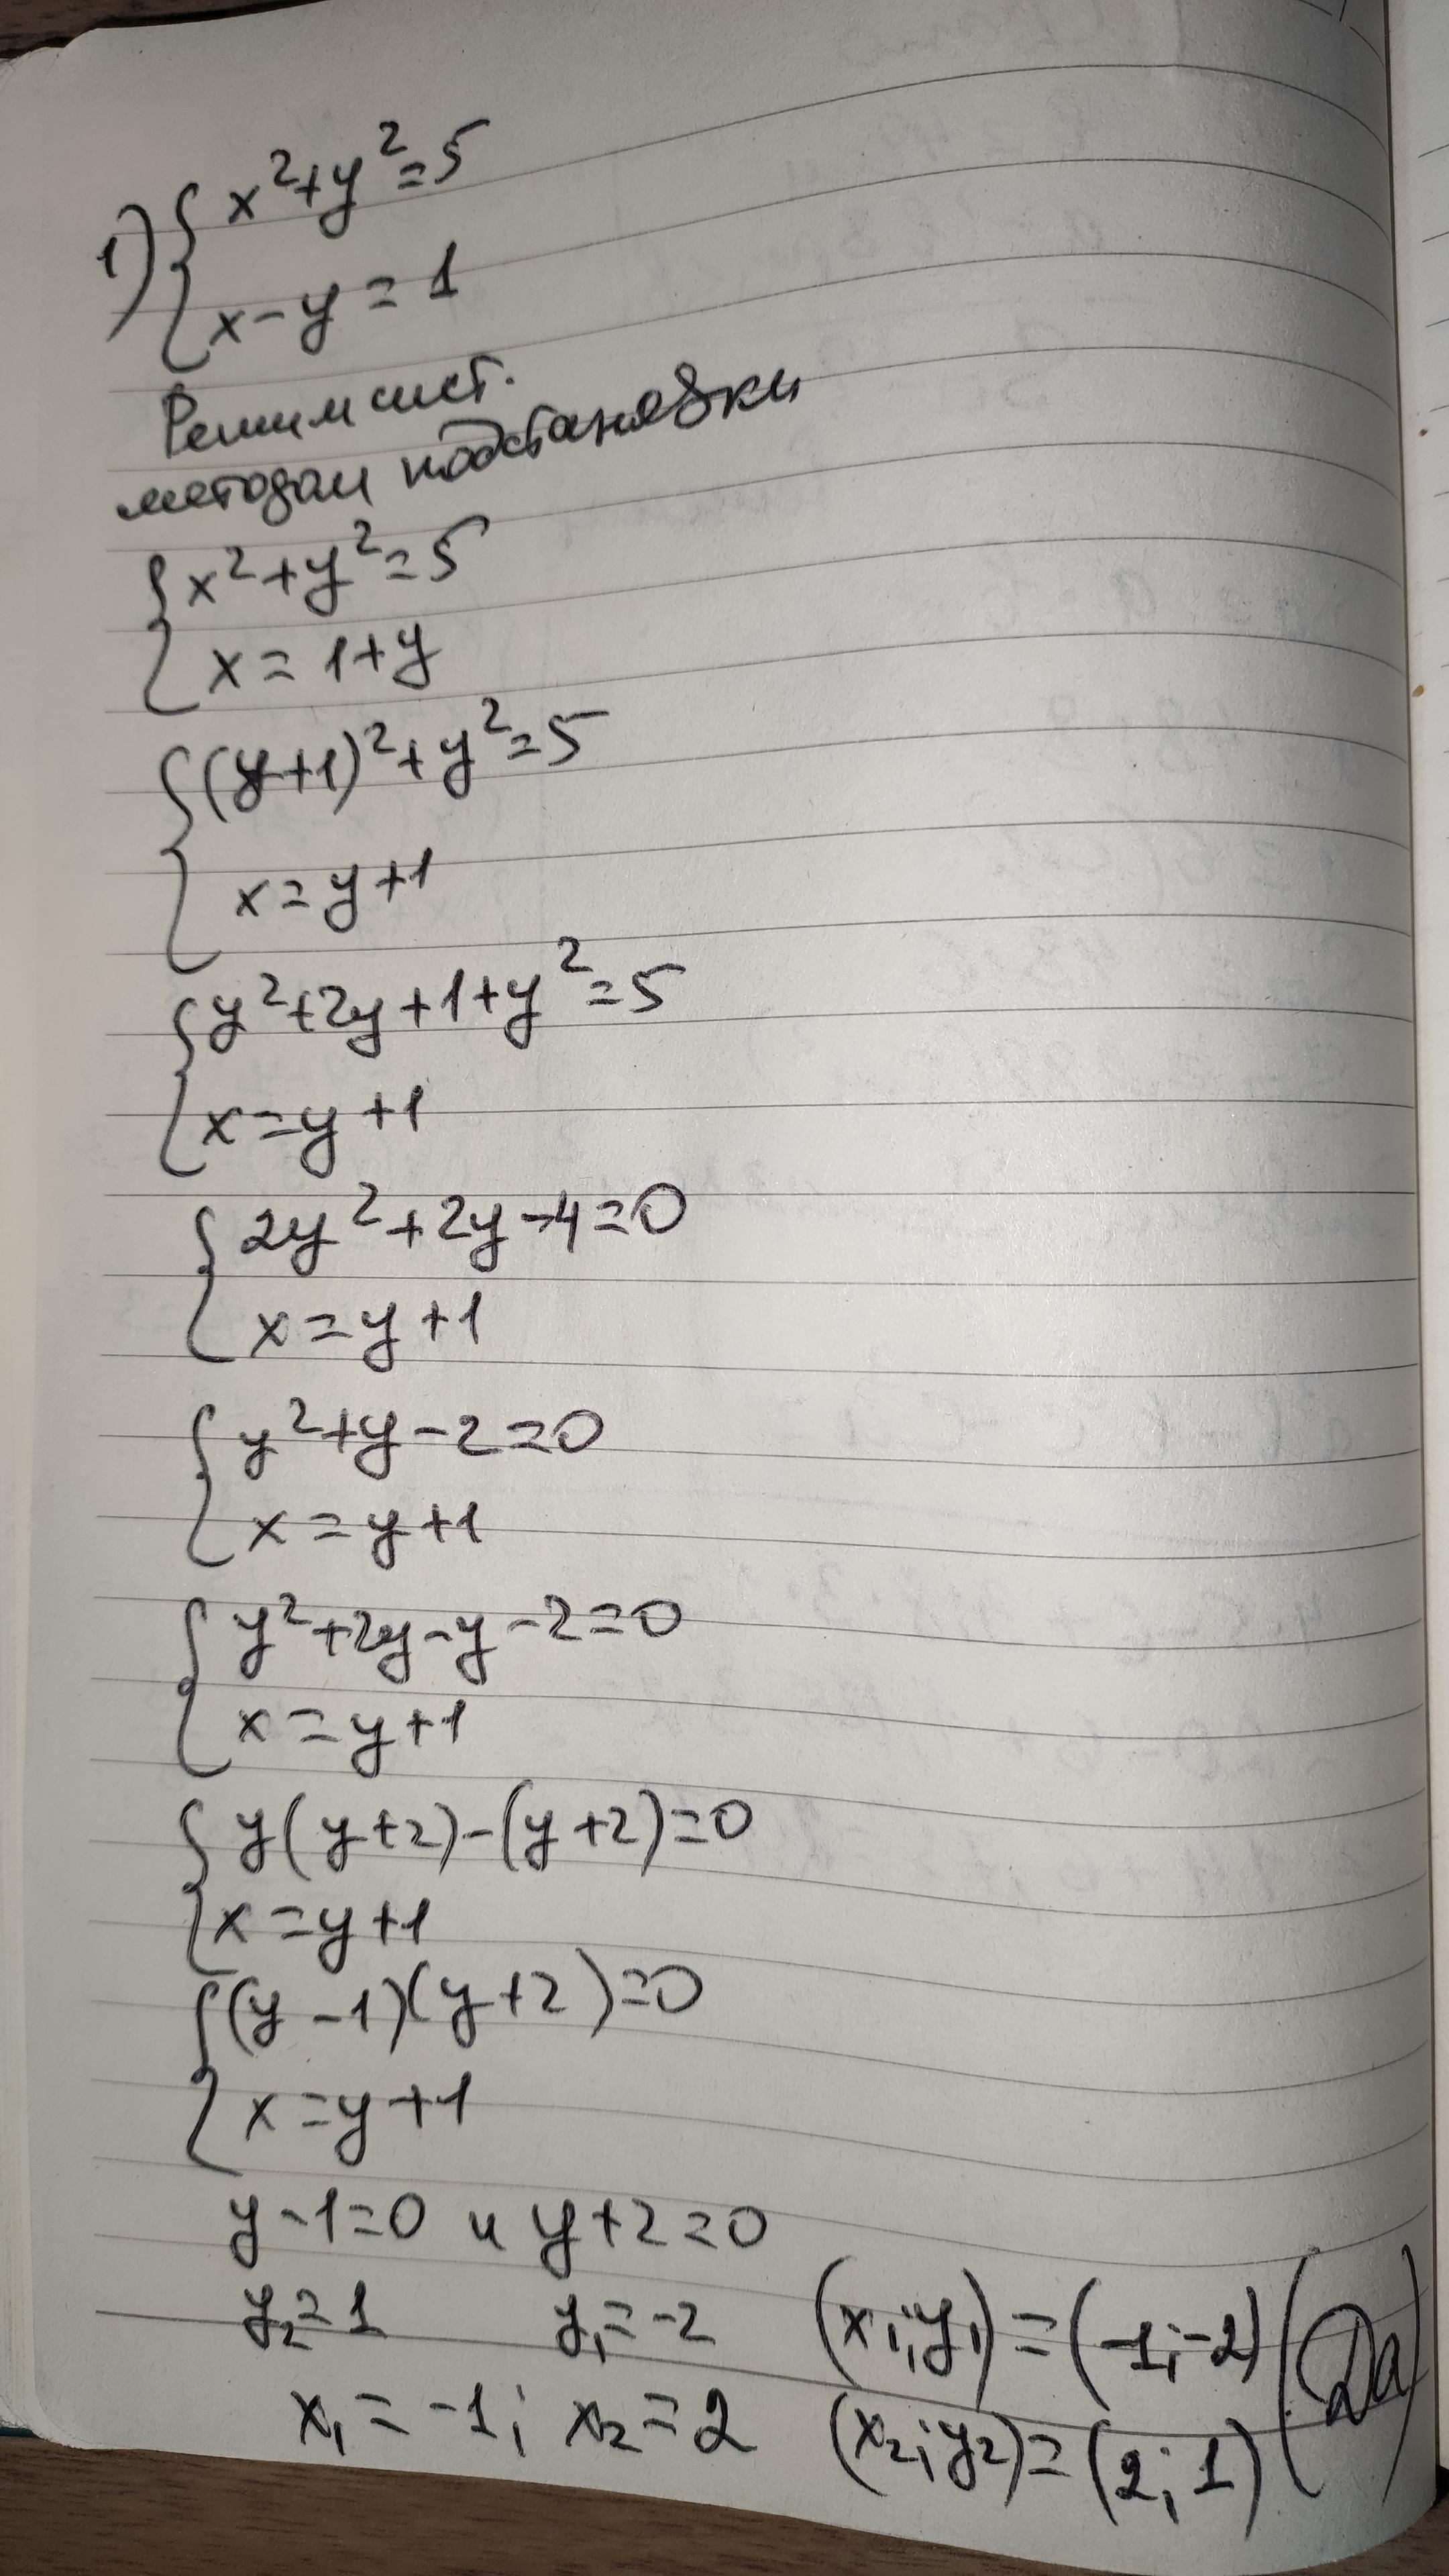 1) { x²+y²=5
x-y=1
Решим сист.
методом подстановки
{ x²+y²=5
x=1+y
{ (y+1)²+y²=5
x=y+1
{ y²+2y+1+y²=5
x=y+1
{ 2y²+2y-4=0
x=y+1
{ y²+y-2=0
x=y+1
{ y²+2y-y-2=0
x=y+1
{ y(y+2)-(y+2)=0
x=y+1
{ (y-1)(y+2)=0
x=y+1
y-1=0 и y+2=0
y₂=1 y₁=-2 (x₁;y₁)=(-1;-2) (Да)
x₁=-1; x₂=2 (x₂;y₂)=(2;1)